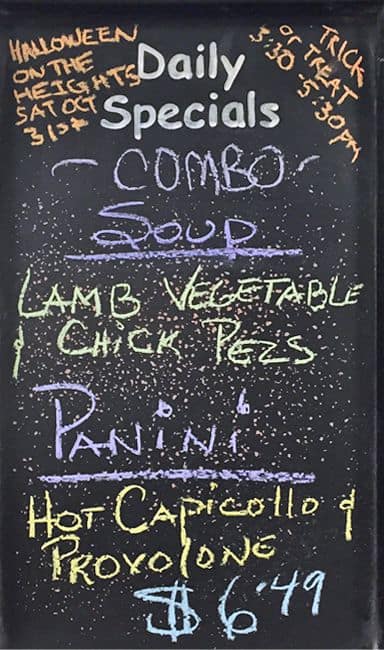 HALLOWEEN
ON THE
HEIGHTS
SAT OCT
31st
TRICK
or TREAT
3:30 - 5:30PM
Daily
Specials
- COMBO -
SOUP
LAMB VEGETABLE
& CHICK PEZS
PANINI
HOT CAPICOLLO &
PROVOLONE
$6.49